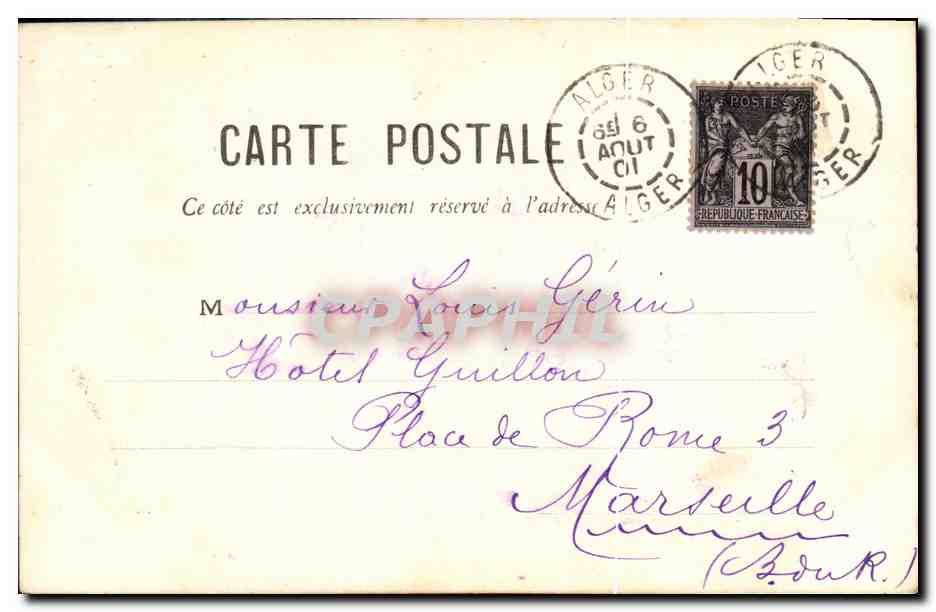 ALGER
6E 6
AOUT
01
ALGER
ALGER
POSTE
10
REPUBLIQUE FRANÇAISE
CARTE POSTALE
Ce côté est exclusivement réservé à l'adresse
Monsieur Louis Gérin
CPAPHIL
Hôtel Guillon
Place de Rome 3
Marseille
(B. du R.)